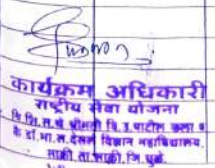 कार्यक्रम अधिकारी
राष्ट्रीय सेवा योजना
वि.शि.स.चे श्रीमती वि.उ.पाटील कला व
कै.डॉ.भा.स.देसले विज्ञान महाविद्यालय,
साक्री ता.साक्री, जि.धुळे.